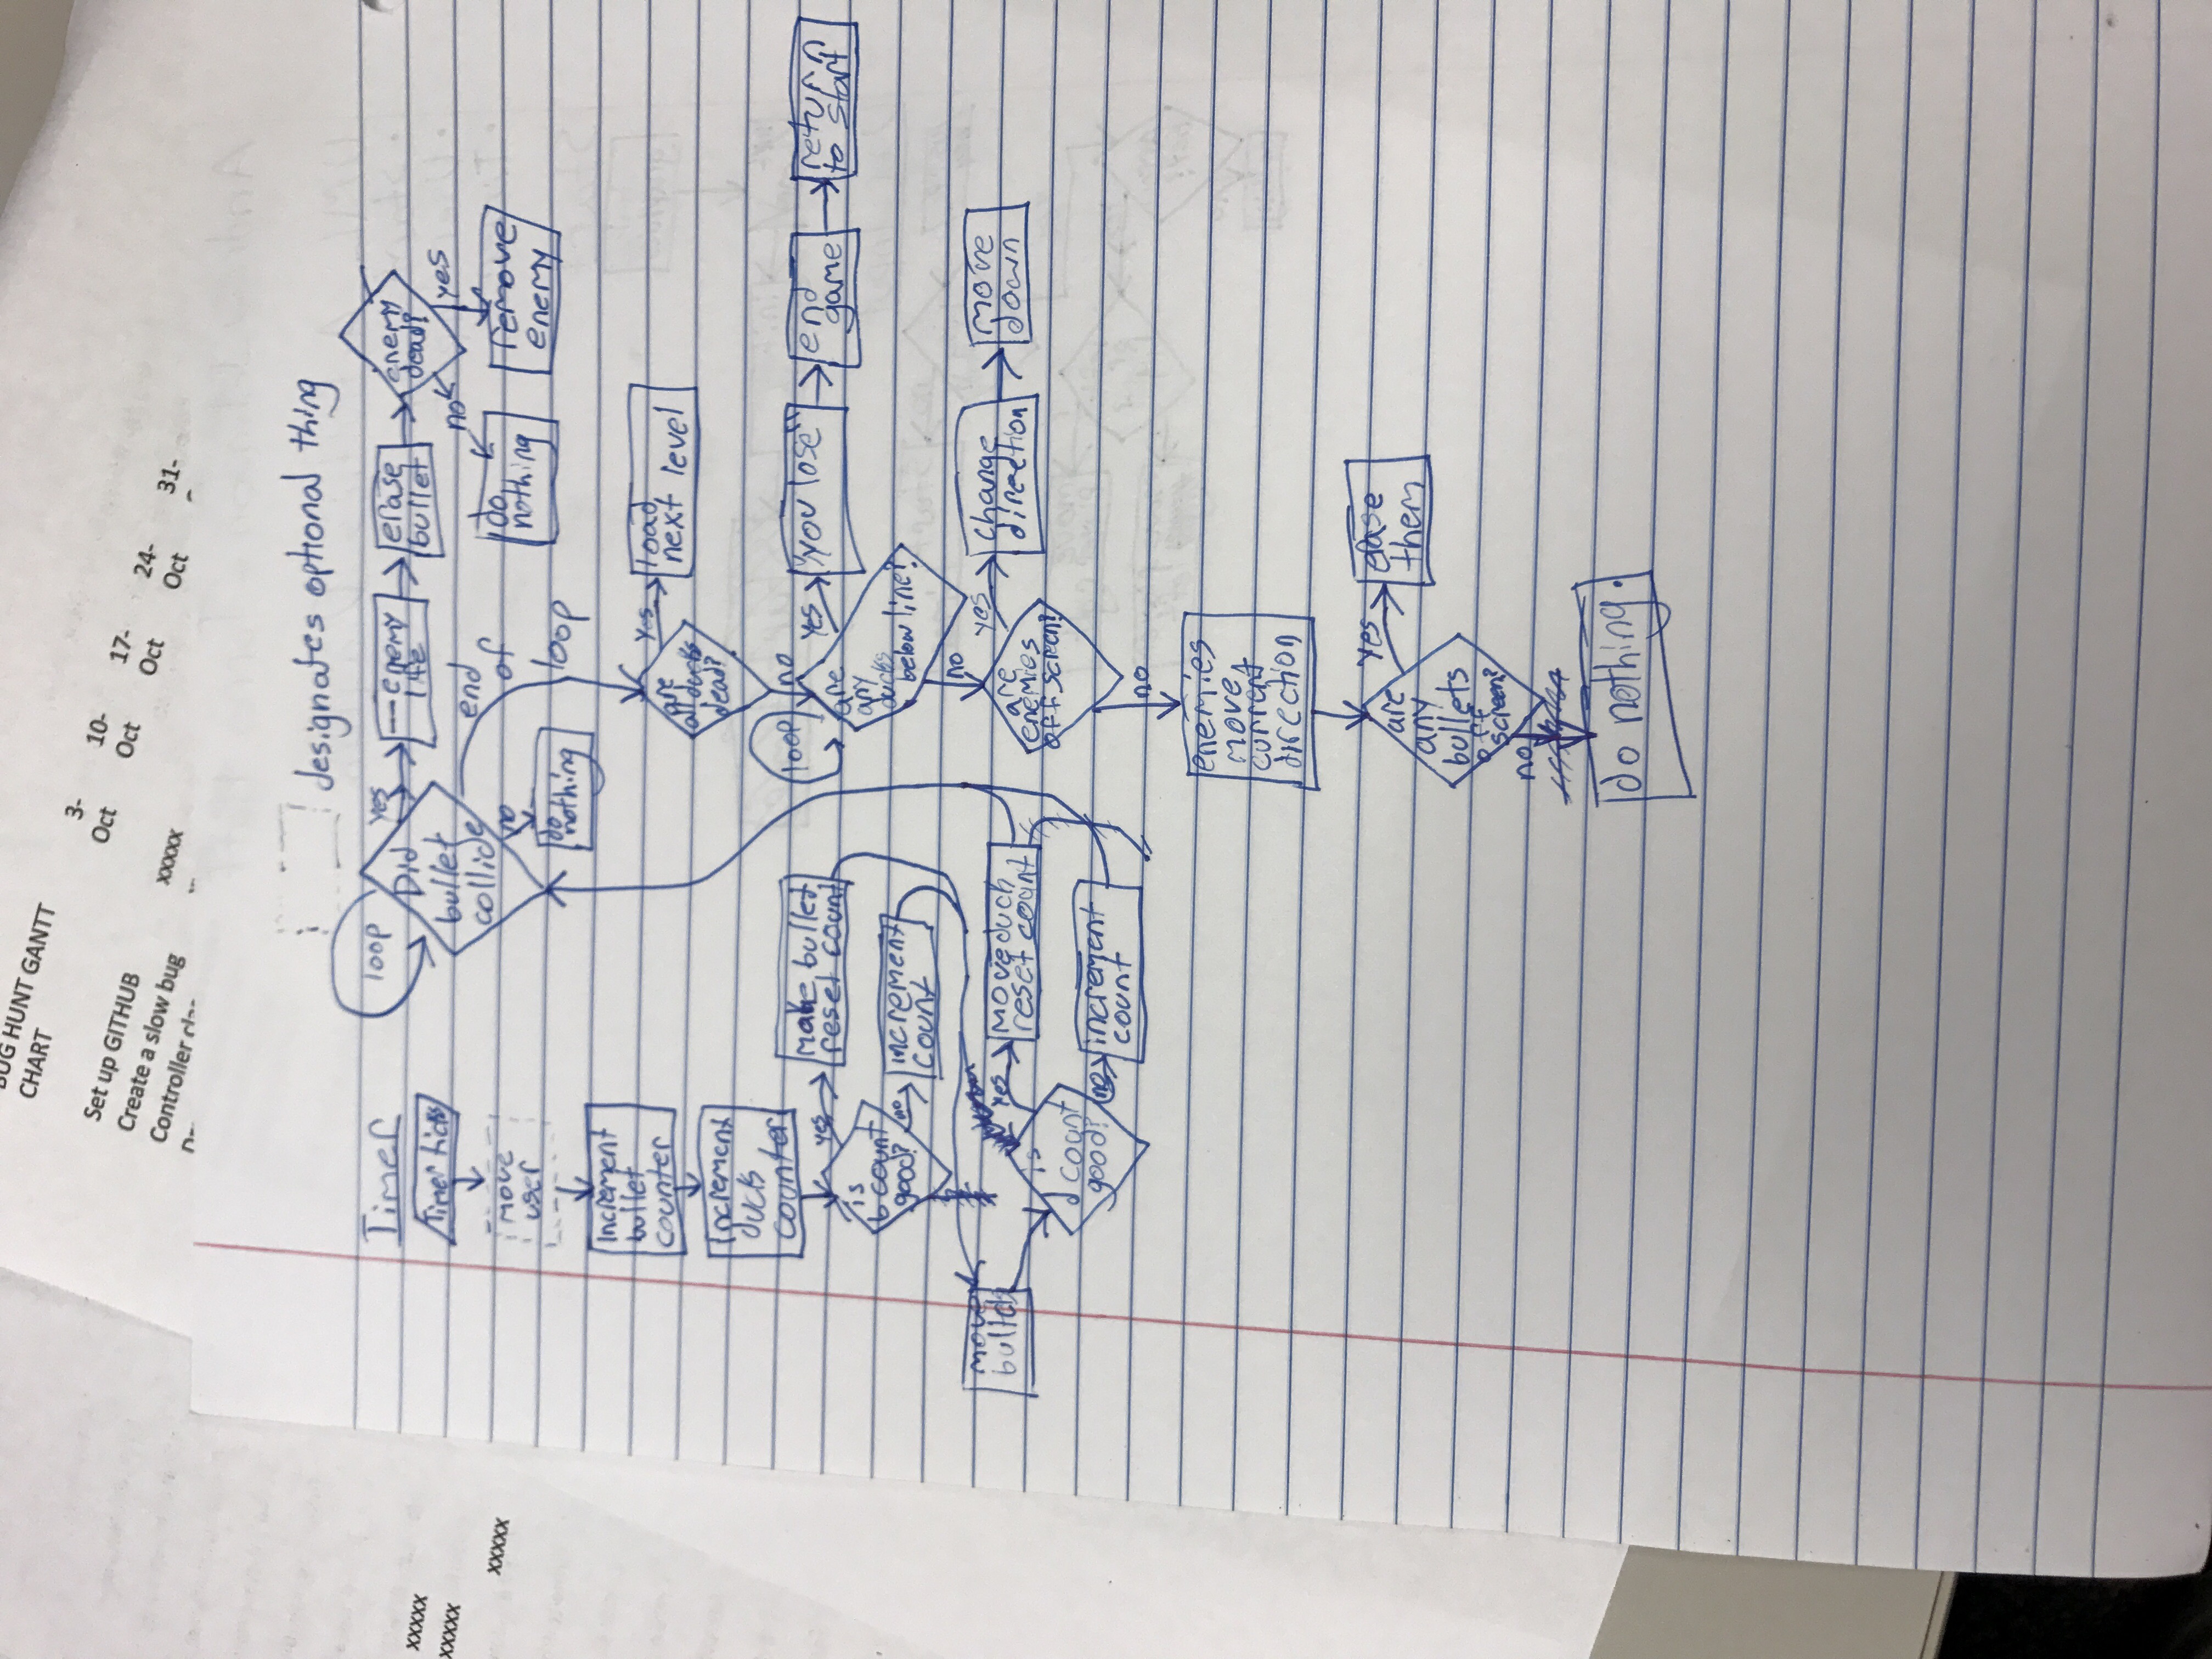 BUG HUNT GANTT
CHART
3-
Oct
10-
Oct
17-
Oct
24-
Oct
31-
Set up GITHUB
xxxxx
Create a slow bug
Controller
xxxxx
xxxxx
xxxxx
designates optional thing
Timer
Timer ticks
move
user
Increment
bullet
counter
Increment
ducks
counter
is
b count
good?
yes
make bullet
reset count
no
increment
count
move
bullets
is
d count
good?
yes
move duck
reset count
no
increment
count
loop
Did
bullet
collide
yes
-- enemy
life
erase
bullet
enemy
dead?
no
do
nothing
yes
remove
enemy
no
do
nothing
end
of
loop
are
all ducks
dead?
yes
load
next level
no
loop
are
any
ducks
below line?
yes
"you lose"
end
game
return
to start
no
are
enemies
off screen?
yes
change
direction
move
down
no
enemies
move
current
direction
are
any
bullets
off
screen?
yes
erase
them
no
do nothing.